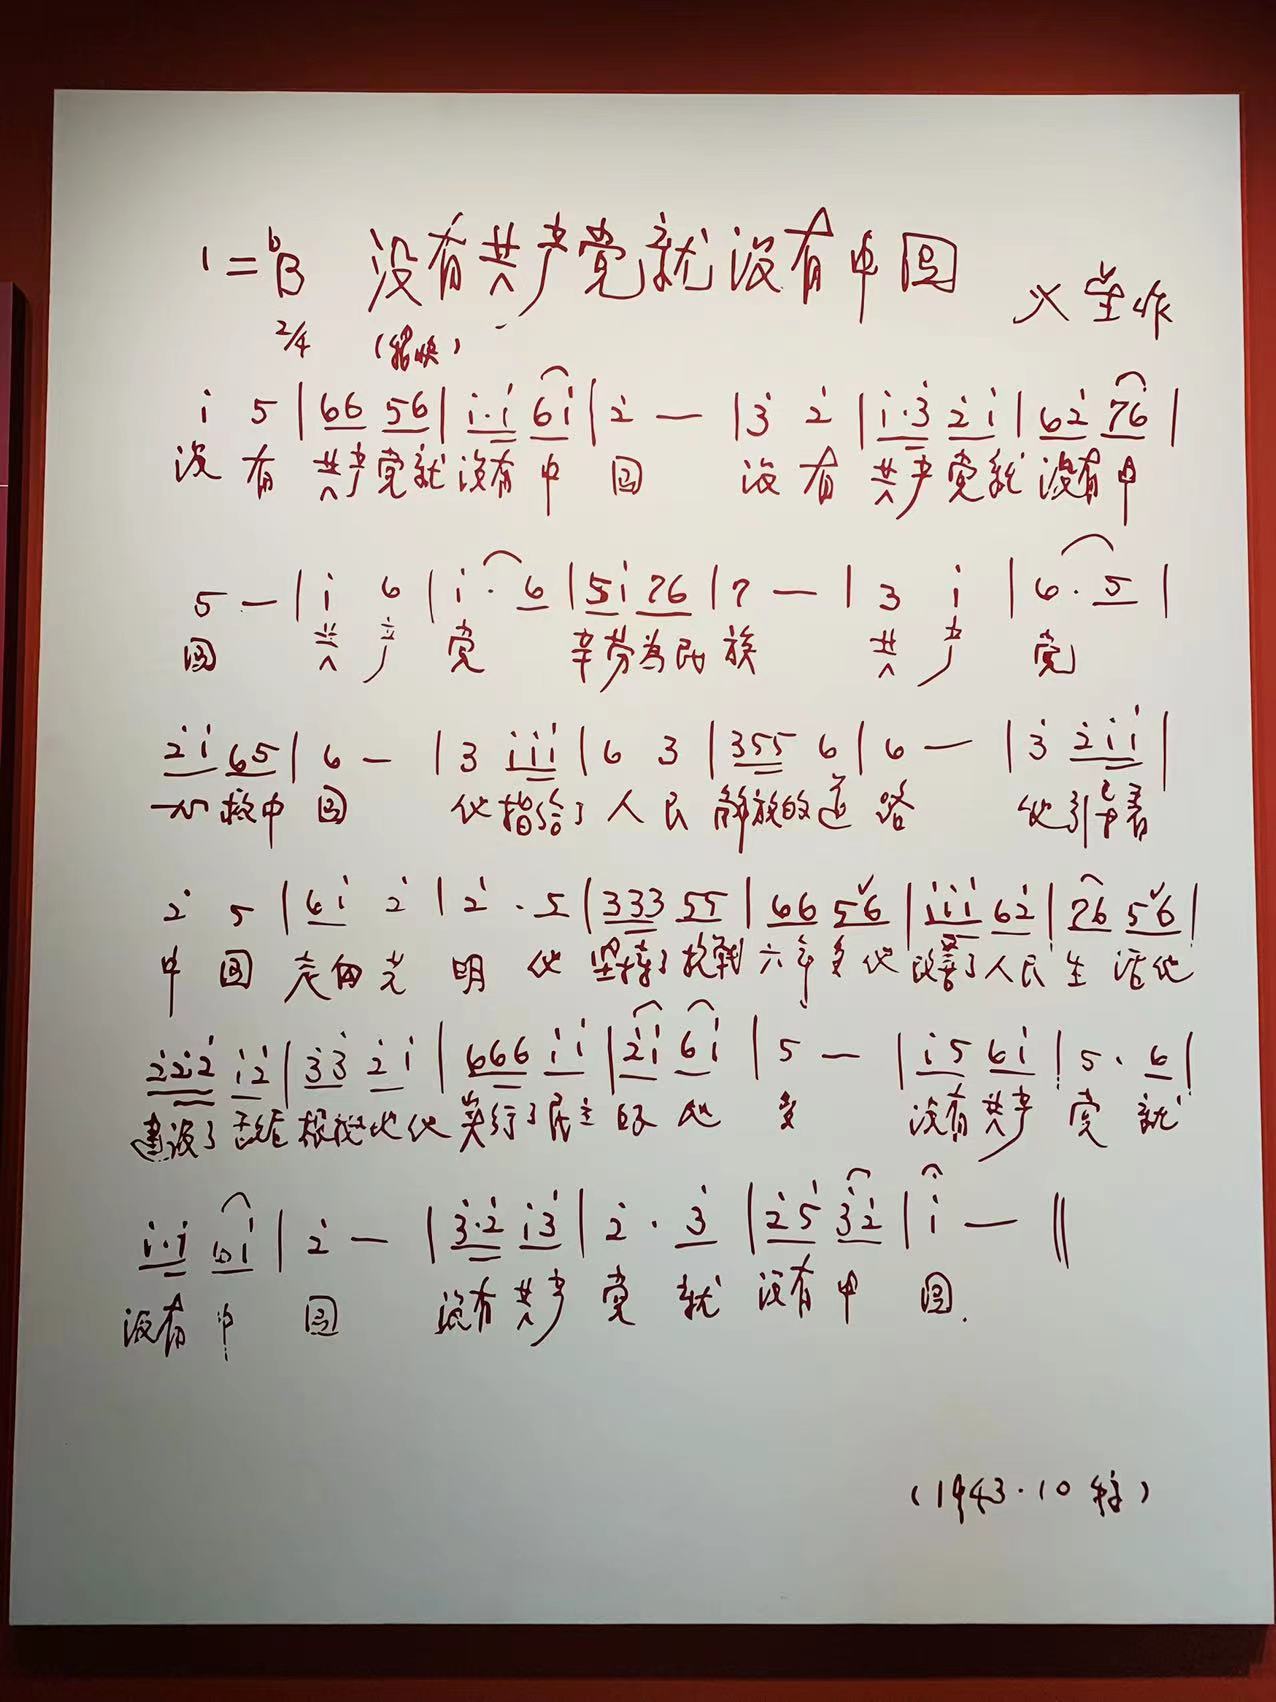 1=♭B 没有共产党就没有中国
2/4 (稍快) 火星作
i̇ 5 | 66 56 | i̇·i̇ 6i̇ | 2̇ — | 3̇ 2̇ | i̇·3̇ 2̇i̇ | 62̇ 76 |
没有共产党就没有中国 没有共产党就没有中
5 — | i̇ 6 | i̇· 6 | 5i̇ 76 | 7 — | 3 i̇ | 6·5 |
国 共产党 辛劳为民族 共产党
2̇i̇ 65 | 6 — | 3 i̇i̇i̇ | 6 3 | 355 6 | 6 — | 3̇ 2̇i̇i̇ |
一心救中国 他指给了人民解放的道路 他引导着
2̇ 5 | 6i̇ 2̇ | 2̇·5 | 333 55 | 66 5ˇ6 | i̇i̇i̇ 62̇ | 76 5ˇ6 |
中国走向光明 他坚持了抗战六年多他改善了人民生活他
2̇2̇2̇ i̇2̇ | 3̇3̇ 2̇i̇ | 666 i̇i̇ | 2̇i̇ 6i̇ | 5 — | i̇5 6i̇ | 5·6 |
建设了敌后根据地他实行了民主好处多 没有共产党就
i̇·i̇ 6i̇ | 2̇ — | 3̇·2̇ i̇3̇ | 2̇·3̇ | 2̇5 3̇2̇ | i̇ — ‖
没有中国 没有共产党就没有中国.
(1943.10 稿)